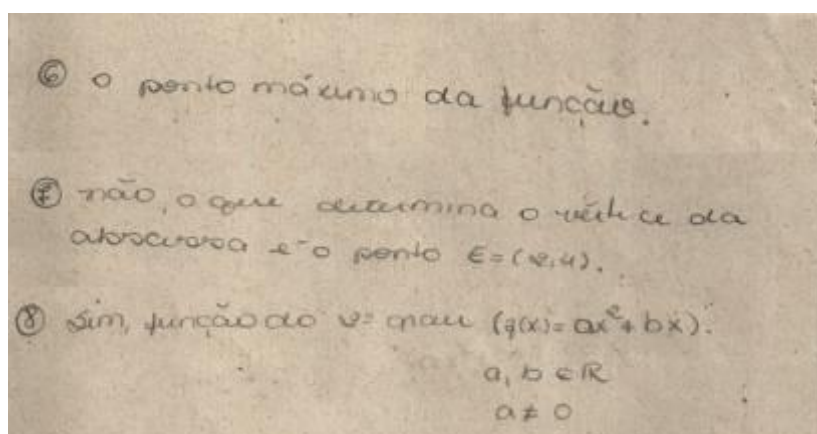 ⑥ o ponto máximo da função.
⑦ não, o que determina o vértice da
abscissa é o ponto E=(2,4).
⑧ sim, função do 2º grau (f(x)=ax²+bx).
a, b ∈ R
a ≠ 0